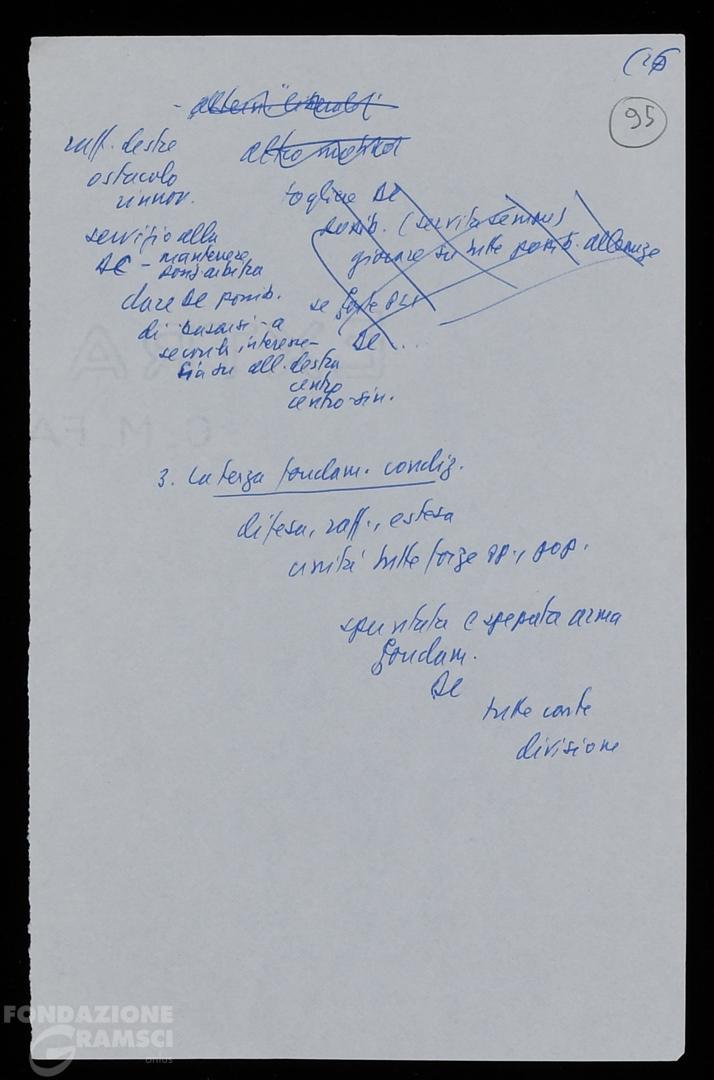 (26
95
raff. destre
ostacolo
rinnov.
servizio alla
DC - mantenere
dare DC possib.
di
seconda interesse
su all. destra
centro
centro-sin.
togliere DC
possib. (servita sempre)
giocare su tutte possib. alleanze
se forte PLI
DC ...
3. La terza fondam. condiz.
difesa, raff., estesa
unità tutte forze op., pop.
spuntata e spezzata arma
fondam.
DC
tutte carte
divisione
FONDAZIONE
GRAMSCI
onlus